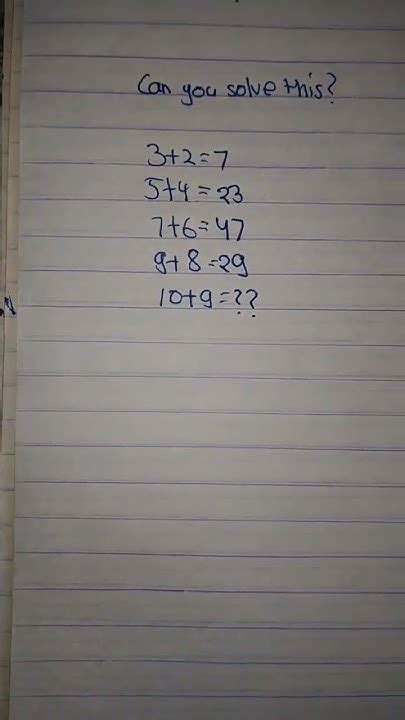 Can you solve this?
3+2=7
5+4=23
7+6=47
9+8=29
10+9=??